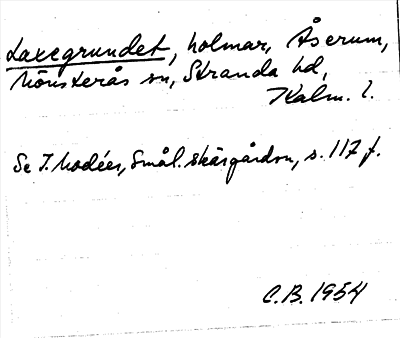 Laxegrundet, holmar, Åserum,
Mönsterås sn, Stranda hd,
Kalm. l.
Se T. Modéer, Smål. skärgårdsn, s. 117 f.
C.B. 1954